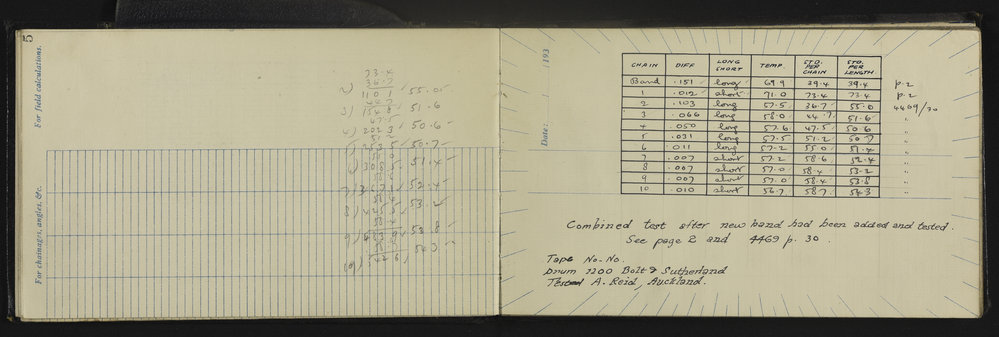 5
For field calculations.
For chainages, angles, &c.
73.4
36.7
2) 110.1 / 55.0
44.7
3) 154.8 / 51.6
47.5
4) 202.3 / 50.6
5) 253.5 / 50.7
55.0
6) 308.5 / 51.4
58.6
7) 367.1 / 52.4
58.4
8) 425.5 / 53.2
58.4
9) 483.9 / 53.8
58.7
10) 542.6 / 54.3
Date: / /193
CHAIN DIFF LONG SHORT TEMP. STD. PER CHAIN STD. PER LENGTH
Band .151 long 69.9 39.4 39.4 p.2
1 .012 short 71.0 73.4 73.4 p.2
2 .103 long 57.5 36.7 55.0 4469/30
3 .066 long 58.0 44.7 51.6 "
4 .050 long 57.6 47.5 50.6 "
5 .031 long 57.5 51.2 50.7 "
6 .011 long 57.2 55.0 51.4 "
7 .007 short 57.2 58.6 52.4 "
8 .007 short 57.0 58.4 53.2 "
9 .007 short 57.0 58.4 53.8 "
10 .010 short 56.7 58.7 54.3 "
Combined test after new band had been added and tested.
See page 2 and 4469 p. 30.
Tape No. No.
Drum 1200 Bolt & Sutherland
Tested A. Reid, Auckland.